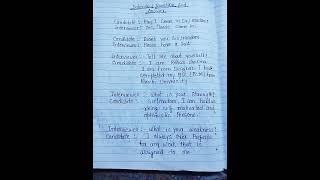 Interview Question and
Answers
Candidate : May I Come in Sir/Madam
Interviewer : Yes, Please Come in.
Candidate : Thank you Sir/Madam
Interviewer : Please have a seat
Interviewer : Tell me about yourself.
Candidate : I am
I am from I have
completed my
from Ranchi University
Interviewer : What is your Strength?
Candidate : Sir/Madam, I am hard
working self motivated and
optimistic Person.
Interviewer : What is your weakness?
Candidate : I Always
for any work that is
assigned to me